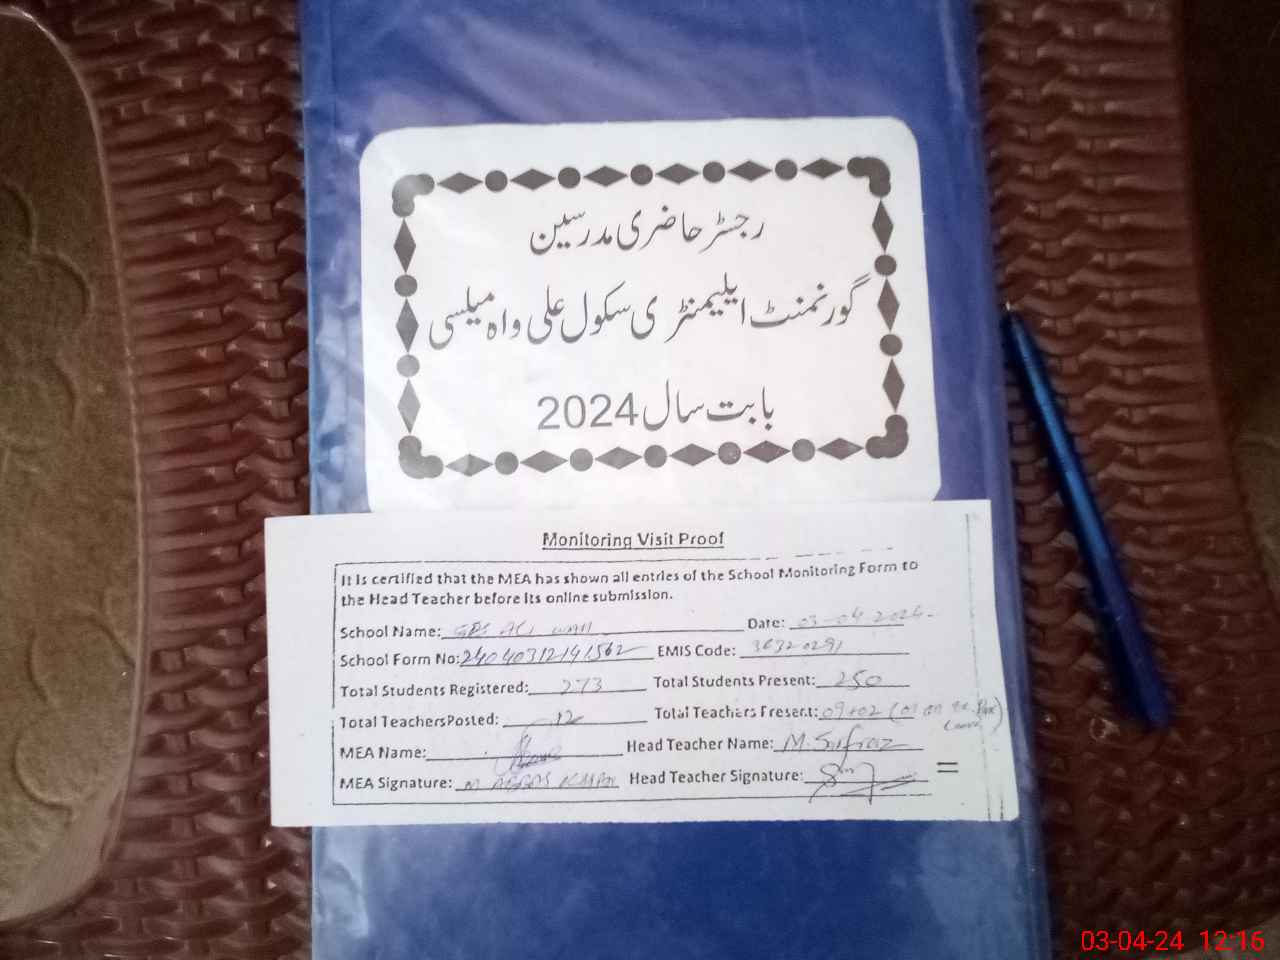 رجسٹر حاضری مدرسین
گورنمنٹ ایلیمنٹری سکول علی واہ میلسی
بابت سال 2024
Monitoring Visit Proof
It is certified that the MEA has shown all entries of the School Monitoring Form to
the Head Teacher before its online submission.
School Name: ALI WAH Date: 03-04-2024-
School Form No: 24040312141562 EMIS Code: 36320291
Total Students Registered: 273 Total Students Present: 250
Total TeachersPosted: 12 Total Teachers Present: 09+02 (01 on
Leave)
MEA Name: Head Teacher Name: M. Sarfraz
MEA Signature: M ABBAS KHAN Head Teacher Signature:
03-04-24 12:16